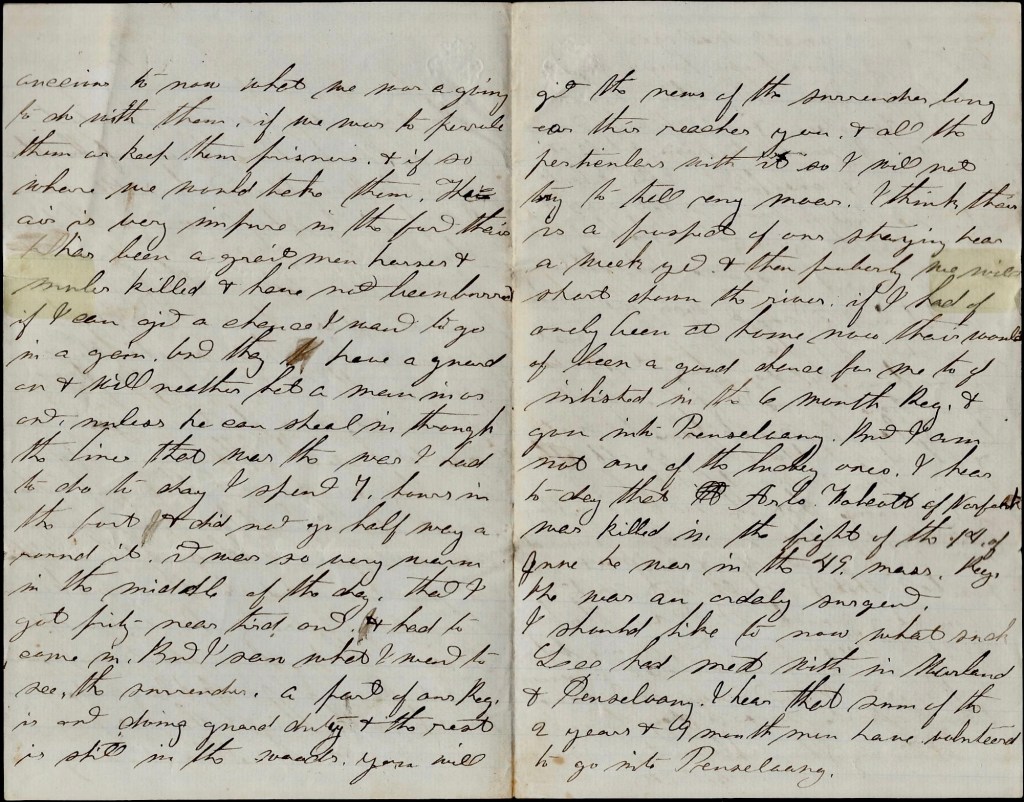 anceious to now what we was a going
to do with them. if we was to perrole
them or keep them prisners. & if so
where we would take them. The
air is very impure in the ford thair
has been a grait men horses &
mules killed & have not been burred
if I can git a chance I want to go
in a gain. but thay have a guard
on & will neather let a man in or
out, unless he can steal in through
the lines that was the was I had
to do to day I spent 7. hours in
the fort & did not go half way a
round it. it was so very warm
in the middle of the day. that I
got prity near tird out. & had to
come in. But I seen what I want to
see, the surrender. a part of our Reg.
is out doing guard duty & the rest
is still in the woods. you will
git the news of the surrender long
ear this reaches you. & all the
perticulers with it so I will not
try to tell eny moar. I think thair
is a prospect of our staying hear
a week yet. & then proberly we will
start down the river. if I had of
onely been at home now thair would
of been a good chance for me to of
inlisted in the 6 month Reg. &
gon into Penselvang. But I am
not one of the luckey ones. I hear
to day that Arlo of Norfolk
was killed in the fight of the of
June he was in the 49. mass. Reg.
He was an ordaly surgent.
I should like to now what suck
Lee had met with in Marland
& Penselvang. I hear that sum of the
2 years & 9 month men have volnteerd
to go into Penselvang.